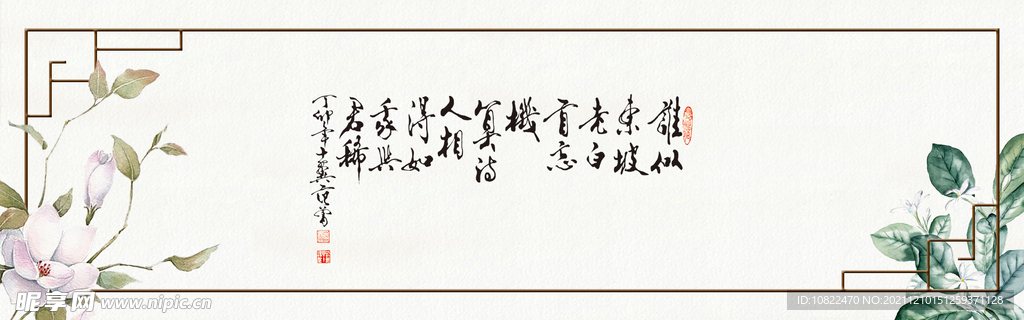 誰似
東坡
老白
首忘
機
算詩
人相
得如
我與
君稀
丁卯年十翼范曾
昵享网 www.nipic.cn
ID:10822470 NO:20211210151259371128